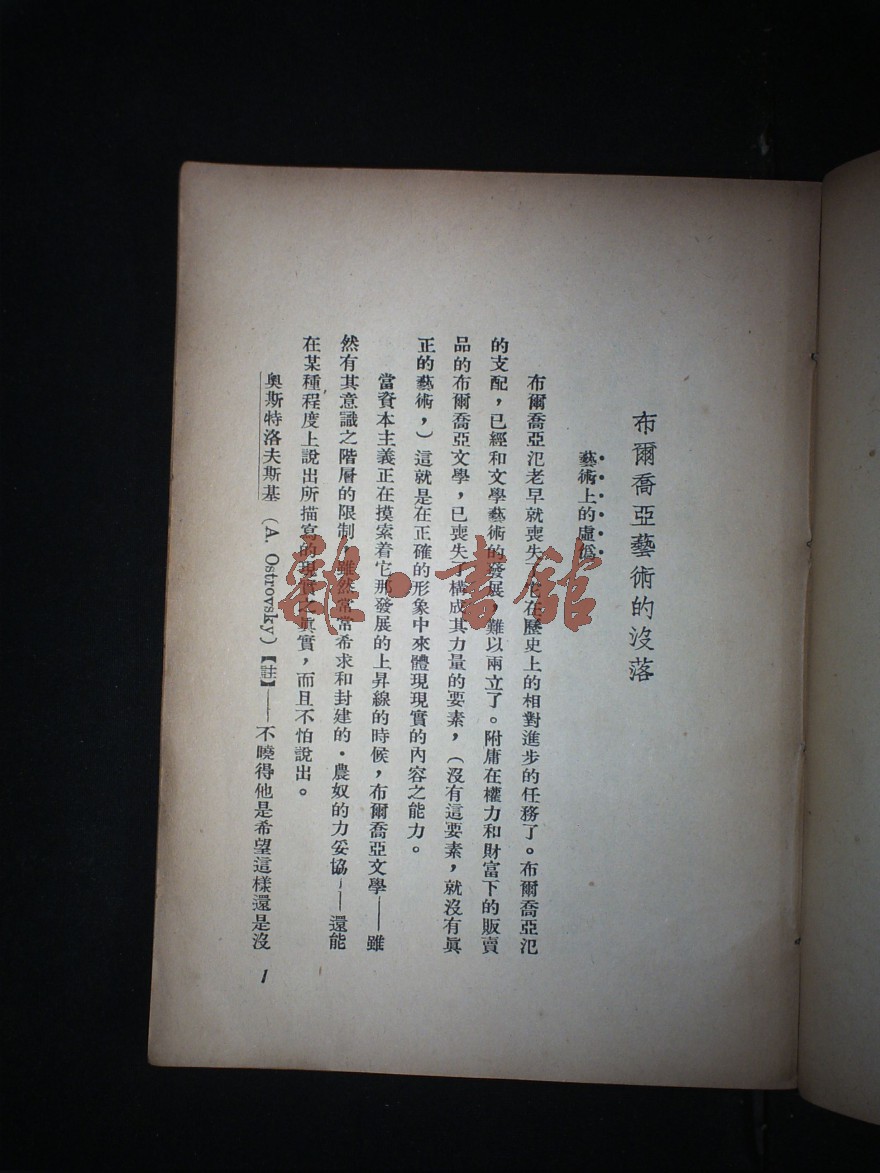 布爾喬亞藝術的沒落
藝術上的虛僞
布爾喬亞氾老早就喪失了它在歷史上的相對進步的任務了。布爾喬亞氾
的支配，已經和文學藝術的發展，難以兩立了。附庸在權力和財富下的販賣
品的布爾喬亞文學，已喪失了構成其力量的要素，（沒有這要素，就沒有眞
正的藝術，）這就是在正確的形象中來體現現實的內容之能力。
當資本主義正在摸索着它那發展的上昇線的時候，布爾喬亞文學——雖
然有其意識之階層的限制，雖然常常希求和封建的·農奴的力妥協——還能
在某種程度上說出所描寫的現實之眞實，而且不怕說出。
奧斯特洛夫斯基（A. Ostrovsky）【註】——不曉得他是希望這樣還是沒
1
雜·書館